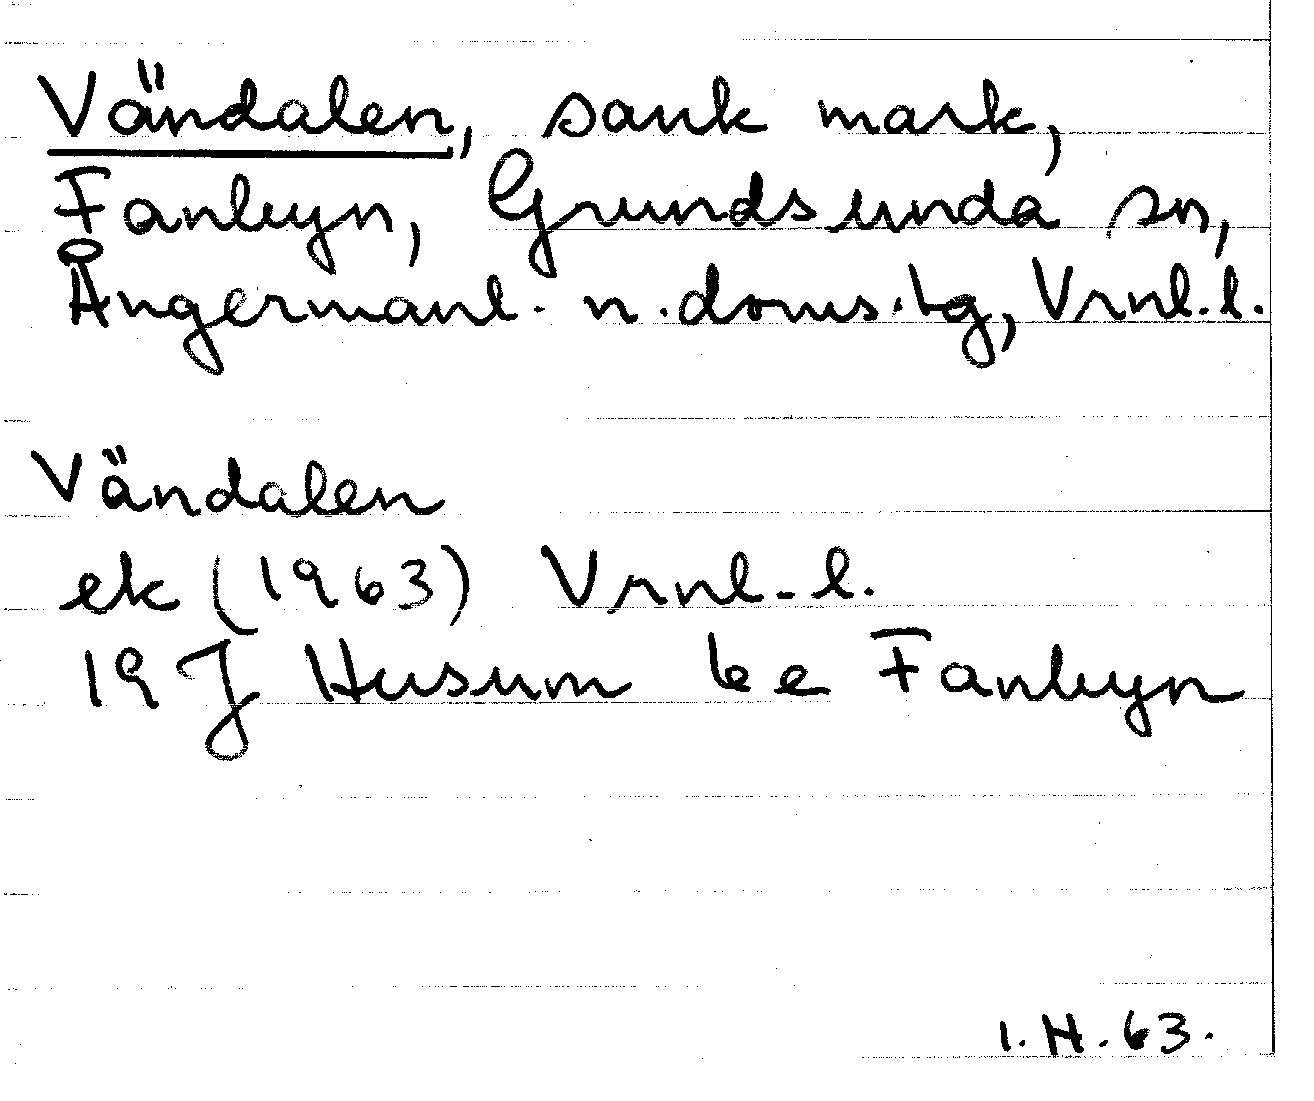 Vändalen, sank mark,
Fanbyn, Grundsunda sn,
Ångermanl. n. doms. tg, Vrnl. l.
Vändalen
ek (1963) Vrnl. l.
19 J Husum be Fanbyn
I. H. 63.